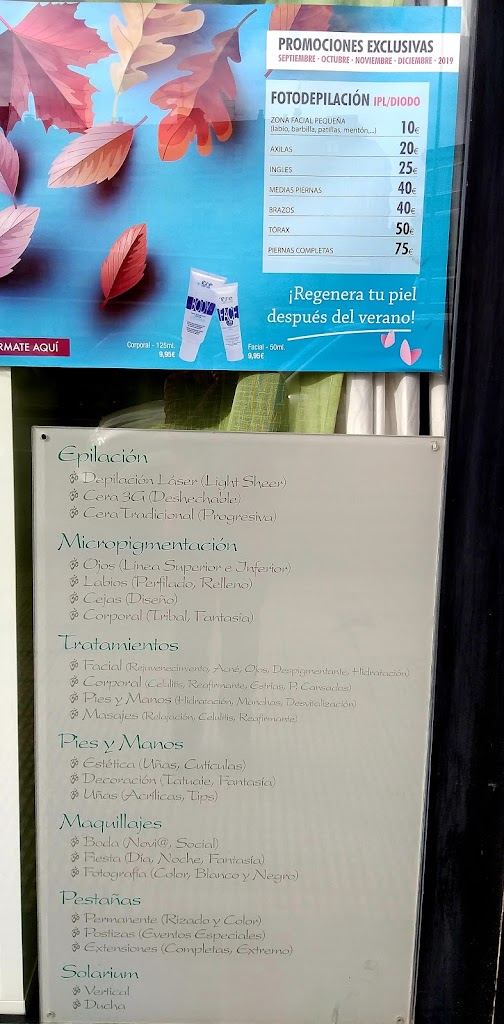 PROMOCIONES EXCLUSIVAS
SEPTIEMBRE · OCTUBRE · NOVIEMBRE · DICIEMBRE · 2019
FOTODEPILACIÓN IPL/DIODO
ZONA FACIAL PEQUEÑA
(labio, barbilla, patillas, mentón,...) 10€
AXILAS 20€
INGLES 25€
MEDIAS PIERNAS 40€
BRAZOS 40€
TÓRAX 50€
PIERNAS COMPLETAS 75€
¡Regenera tu piel
después del verano!
BODY
FACE
RMATE AQUÍ
Corporal - 125ml.
9,95€
Facial - 50ml.
9,95€
Epilación
Depilación Láser (Light Sheer)
Cera 3G (Deshechable)
Cera Tradicional (Progresiva)
Micropigmentación
Ojos (Línea Superior e Inferior)
Labios (Perfilado, Relleno)
Cejas (Diseño)
Corporal (Tribal, Fantasía)
Tratamientos
Facial (Rejuvenecimiento, Acné, Ojos, Despigmentante, Hidratación)
Corporal (Celulitis, Reafirmante, Estrías, P. Cansadas)
Pies y Manos (Hidratación, Manchas, Desvitalización)
Masajes (Relajación, Celulitis, Reafirmante)
Pies y Manos
Estética (Uñas, Cutículas)
Decoración (Tatuaje, Fantasía)
Uñas (Acrílicas, Tips)
Maquillajes
Boda (Novi@, Social)
Fiesta (Día, Noche, Fantasía)
Fotografía (Color, Blanco y Negro)
Pestañas
Permanente (Rizado y Color)
Postizas (Eventos Especiales)
Extensiones (Completas, Extremo)
Solarium
Vertical
Ducha